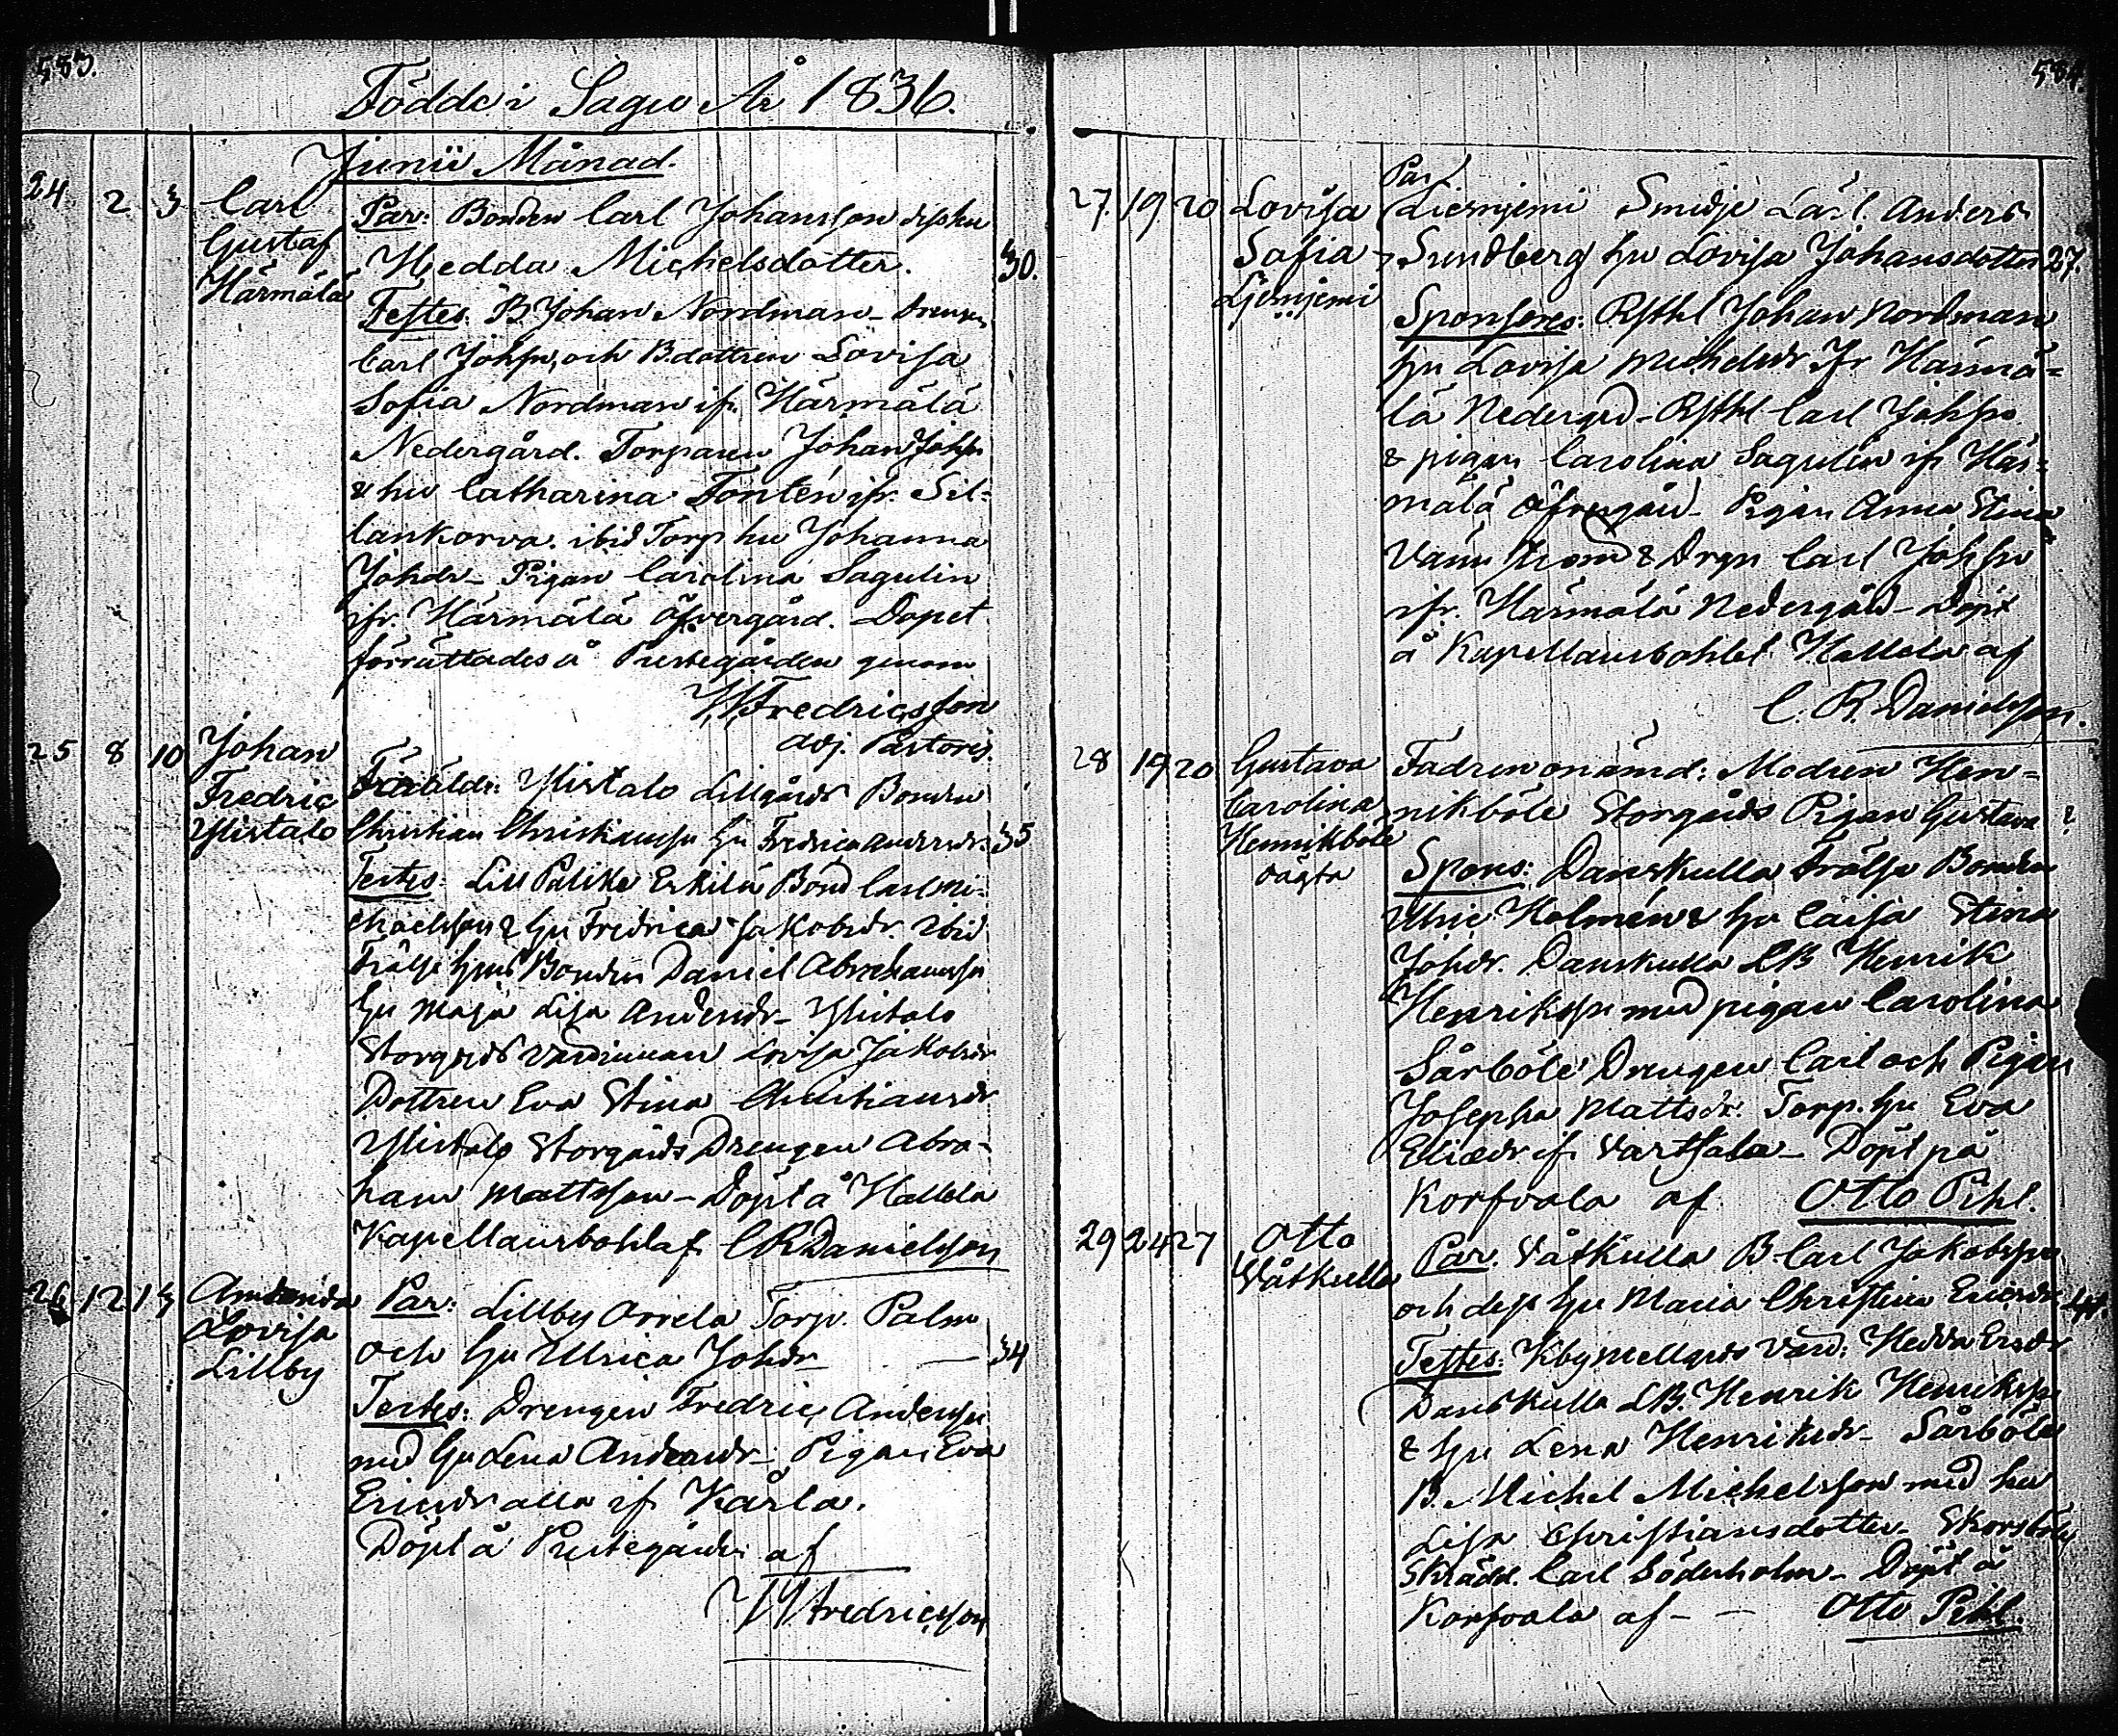 583.
Födde i Sagu År 1836.
Junii Månad.
24 2 3 Carl Gustaf Härmälä
Par: Bonden Carl Johansson dess hu
Hedda Michelsdotter. 30.
Testes. B. Johan Nordman - Drengen
Carl Johss, och B.dottren Lovisa
Sofia Nordman ifr. Härmälä
Nedergård. Torparen Johan Johss
& hu Catharina Fontén ifr. Sil=
lankorva. ibid Torp hu Johanna
Johdr - Pigan Carolina Sagulin
ifr. Härmälä Öfvergård. Dopet
förrättades å Prestegården genom
W Fredricsson
adj. Pastoris.
25 8 10 Johan Fredric Ylistalo
Föräldr: Ylistalo Lillgårds Bonden
Christian Christiansson hu Fredrica Andersdr. 35
Testes: Lill Palike Erkilä Bond Carl Mi-
chaelsson & hu Fredrica Jakobsdr. ibid
Frälse Bonden Daniel Abrahamsson
hu Maja Lisa Andersdr - Ylistalo
Storgårds Värdinnan Lovisa Jakobsdr
Dottren Eva Stina Christiansdr
Ylistalo Storgårds Drengen Abra-
ham Mattsson - Döpt å Hallela
Kapellansbohl af C R Danielsson
26 12 13 Amanda Lovisa Lillby
Par: Lillby Orrela Torp. Palm
och hu Ulrica Johdr — 34
Testes: Drengen Fredric Andersson
med hu Lena Andersdr - Pigan Eva
Ericsdr alla ifr Kårla.
Döpt å Prestegården af
W Fredricsson
584.
27. 19 20 Lovisa Sofia Liesniemi
Par.
Liesniemi Smidje Lärl. Anders
Sundberg hu Lovisa Johansdotter 27.
Sponsores: Rsthl Johan Nordman
hu Lovisa Michelsdr ifr Härmä=
lä Nedergrd - Rsthl Carl Johss
& pigan Carolina Sagulin ifr Här=
mälä Öfvergård - Pigan Anna Stina
& Drgn Carl Johss
ifr. Härmälä Nedergård - Döpt
å Kapellansbohlet Hallela af
C. R. Danielsson.
28 19 20 Gustava Carolina Henrikböle oägta
Fadren onämd: Modren Hen=
rikböle Storgårds Pigan Gustava ?
Spons: Danskulla Frälse Bonden
Ulric Holmén & hu Caisa Stina
Johdr. Danskulla LB Henrik
Henriksson med pigan Carolina
Sårböle Drengen Carl och Pigan
Josepha Mattsdr. Torp. hu Eva
Eliædr ifr Vartsala - Döpt på
Korfvala af Otto Pihl.
29 24 27 Otto Våtkulla
Par. Våtkulla B. Carl Jakobsson
och dess hu Maria Christina Ericsdr
Testes: Kby Mellgrds Värd: Hedda Ersdr
Danskulla LB. Henrik Henriksson
& hu Lena Henriksdr - Sårböle
B. Michel Michelsson med hu
Lisa Christiansdotter - Skorsböle
Skrädd. Carl Söderholm - Döpt å
Korfvala af - — Otto Pihl.